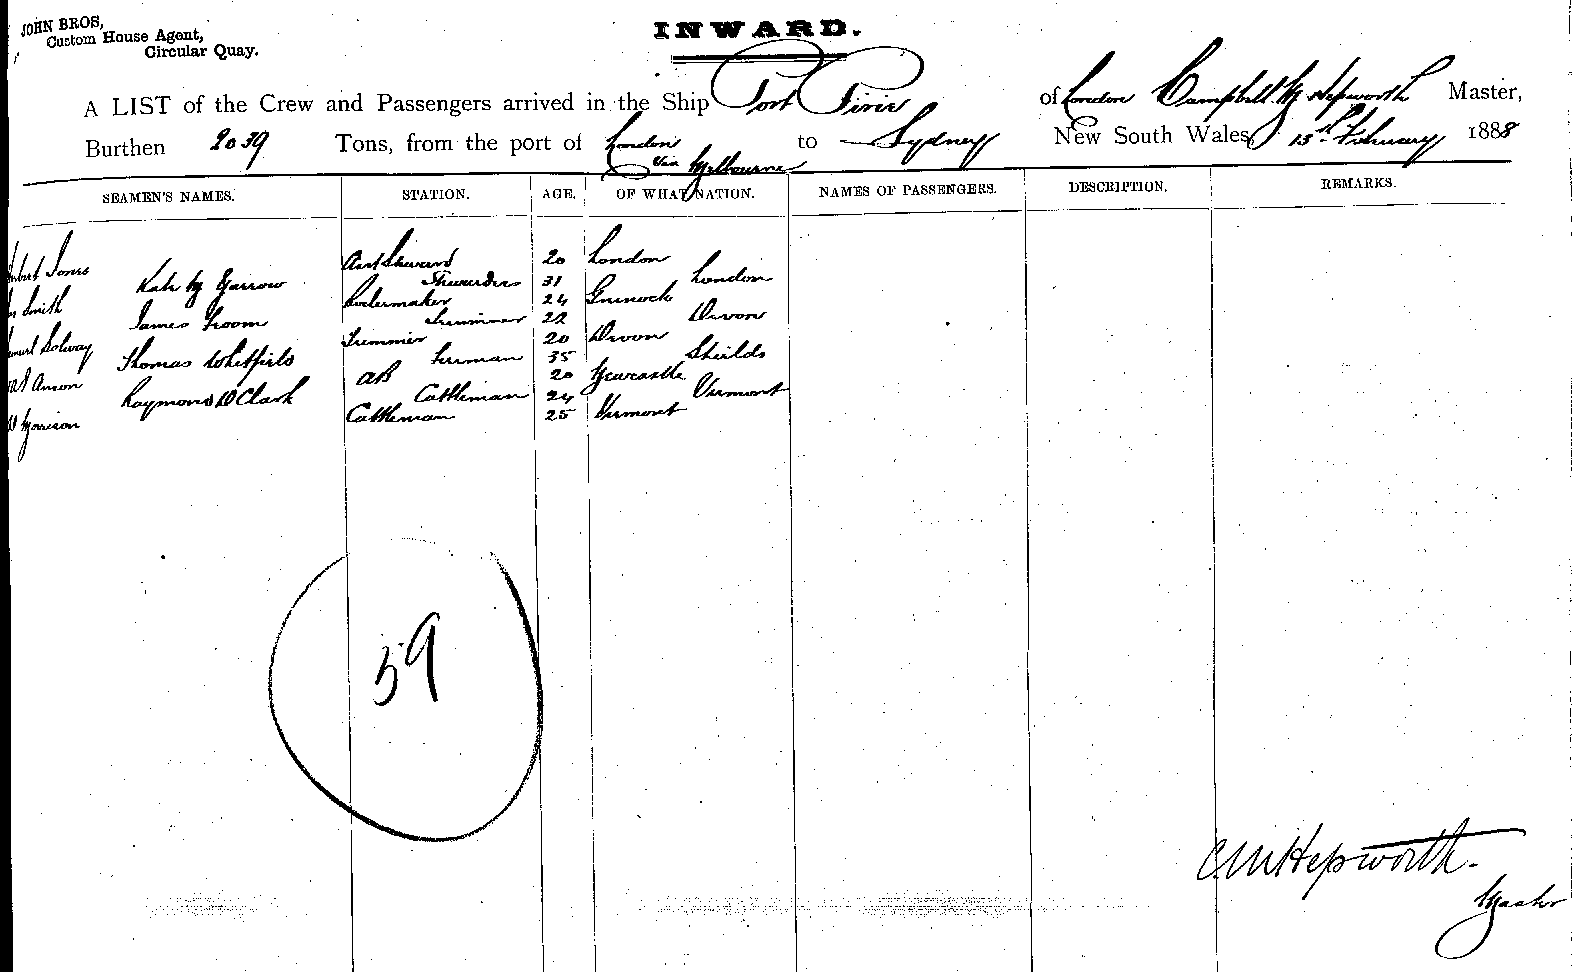 JOHN BROS,
Custom House Agent,
Circular Quay.
INWARD.
A LIST of the Crew and Passengers arrived in the Ship Port Pirie of London Campbell M Hepworth Master,
Burthen 2039 Tons, from the port of London via Melbourne to Sydney New South Wales 15th February 1888
SEAMEN'S NAMES. STATION. AGE. OF WHAT NATION. NAMES OF PASSENGERS. DESCRIPTION. REMARKS.
Jones Asst Steward 20 London
Kate M Garrow Stewardess 31 London
Smith Boilermaker 24 Greenock
James Froom Trimmer 22 Devon
Solway Trimmer 20 Devon
Thomas Whitfield Fireman 35 Shields
Anson AB 20 Newcastle
Raymond D Clark Cattleman 24 Vermont
Morrison Cattleman 25 Vermont
59
C M Hepworth.
Master